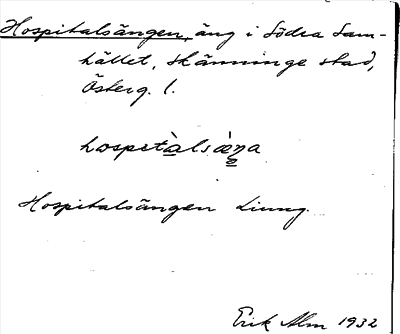 Hospitalsängen, äng i Södra Sam-
hället, Skänninge stad,
Österg. l.
hospitàlsæ̀ŋa
Hospitalsängen Ljung
Erik Alm 1932